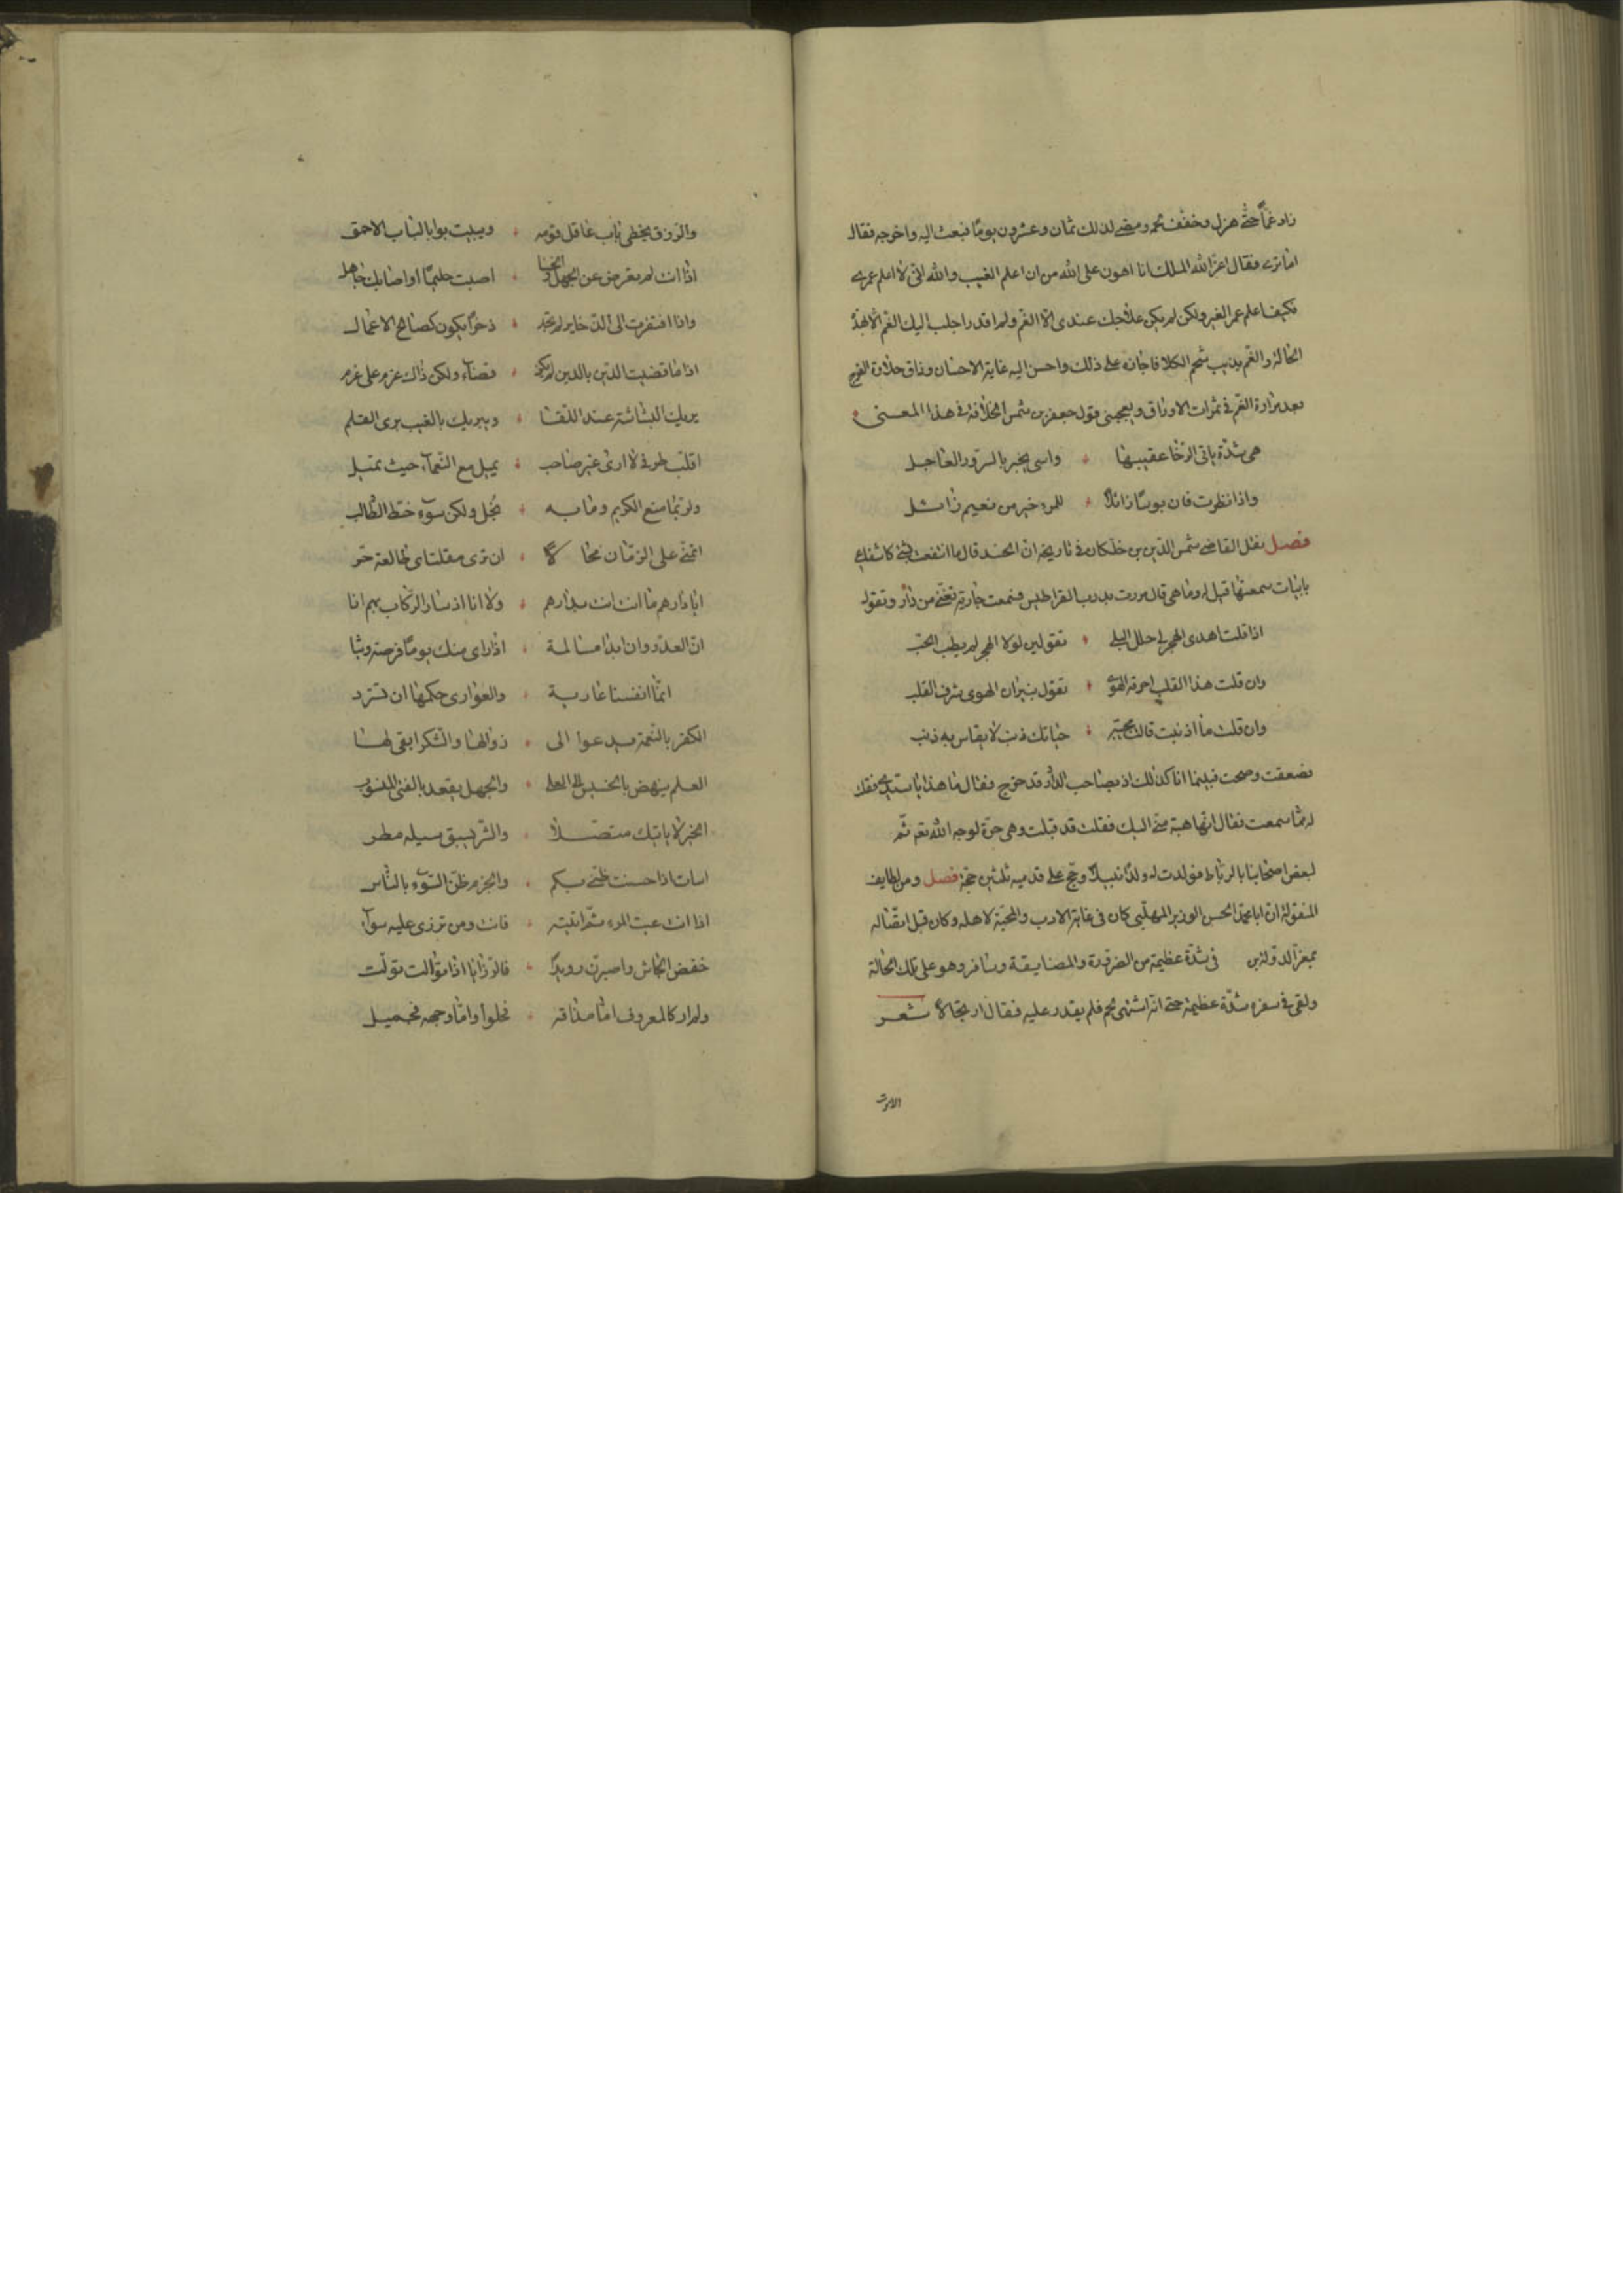 زاد غمّا حتى هزل وخفف لحمه ومضى لذلك ثمان وعشرون يومًا فبعث اليه واخرجه فقال
اما ترى فقال اعزّ الله الملك انا اهون على الله من ان اعلم الغيب والله انى لا اعلم عمرى
فكيف اعلم عمر الغير ولكن لم يكن علاجك عندى الا الغم ولم اقدر اجلب اليك الغم الا بهذه
الحالة والغم يذيب شحم الكلا فاجازه على ذلك واحسن اليه غاية الاحسان وذاق حلاوة الفرح
بعد مرارة الغم فى ثمرات الاوراق ويعجبنى قول جعفر بن شمس الخلافة فى هذا المعنى
هى شدّة ياتى الرّخا عقيبها واسى يخبر بالسرور العاجل
واذا نظرت فان بوسًا زائلا للمرء خير من نعيم زائل
فصل نقل القاضى شمس الدين بن خلكان فى تاريخه ان الجنيد قال ما انتفعت بشئ كانتفاعى
بابيات سمعتها قيل له وما هى قال مررت بدرب القراطيس فسمعت جارية تغنّى من دار وتقول
اذا قلت اهدى الهجر لى حلل البلى تقولين لولا الهجر لم يطب الحبّ
وان قلت هذا القلب احرقه الهوى تقول بنيران الهوى شرف القلب
وان قلت ما اذنبت قالت مجيبة حياتك ذنب لا يقاس به ذنب
فصعقت وصحت فبينما انا كذلك اذ بصاحب الدار قد خرج فقال ما هذا يا سيدى فقلت
له ممّا سمعت فقال انها هبة منى اليك فقلت قد قبلت وهى حرّة لوجه الله تعالى ثمّ
لبعض اصحابنا بالرباط فولدت له ولدًا نبيلا وحجّ على قدميه ثلثين حجّة فصل ومن لطايف
المنقول ان ابا محمد الحسن الوزير المهلّبى كان فى غاية الادب والمحبّة لاهله وكان قبل اتصاله
بمعزّ الدولة بن فى شدّة عظيمة من الضرورة والمضايقة وسافر وهو على تلك الحالة
ولقى فى سفره شدّة عظيمة حتى انّه اشتهى لحم فلم يقدر عليه فقال ارتجالا شعر
الاموت
والرزق يخطى باب عاقل قومه ويبيت بوابا لباب الاحمق
اذا انت لم تعرض عن الجهل والخنا اصبت حليمًا او اصابك جاهل
واذا افتقرت الى الذخاير لم تجد ذخرًا يكون كصالح الاعمال
اذا ما قضيت الدين بالدين لم يكن قضاء ولكن ذاك غرم على غرم
يريك البشاشة عند اللقا ويبريك بالغيب برى القلم
اقلّب طرفى لا ارى غير صاحب يميل مع النعمآء حيث تميل
ولربّما منع الكريم وما به بخل ولكن سوء حظ الطالب
اتمنّى على الزمان محالا ان ترى مقلتاى طالعة حرّ
ايا دارهم ما انت انت بدارهم ولا انا اذ سار الركاب بهم انا
ان العدو وان ابدا مسالمة اذا راى منك يومًا فرصة وثبا
انّما انفسنا عارية والعوارى حكمها ان تسترد
الكفر بالنعمة يدعوا الى زوالها والشكر ابقى لها
العلم ينهض بالخسيس الى العلى والجهل يقعد بالفتى المنسوب
الخير لا ياتيك متصّلا والشر يسبق سيله مطر
اسات اذا حسنت ظنّى بكم والحزم ظنّ السوء بالناس
اذا انت عبت المرء ثمّ اتيته فانت ومن تزرى عليه سوآء
خفض الجاش واصبرن رويدًا فالرزايا اذا توالت تولّت
ولم ار كالمعروف امّا مذاقه فحلوا وامّا وجهه فجميل